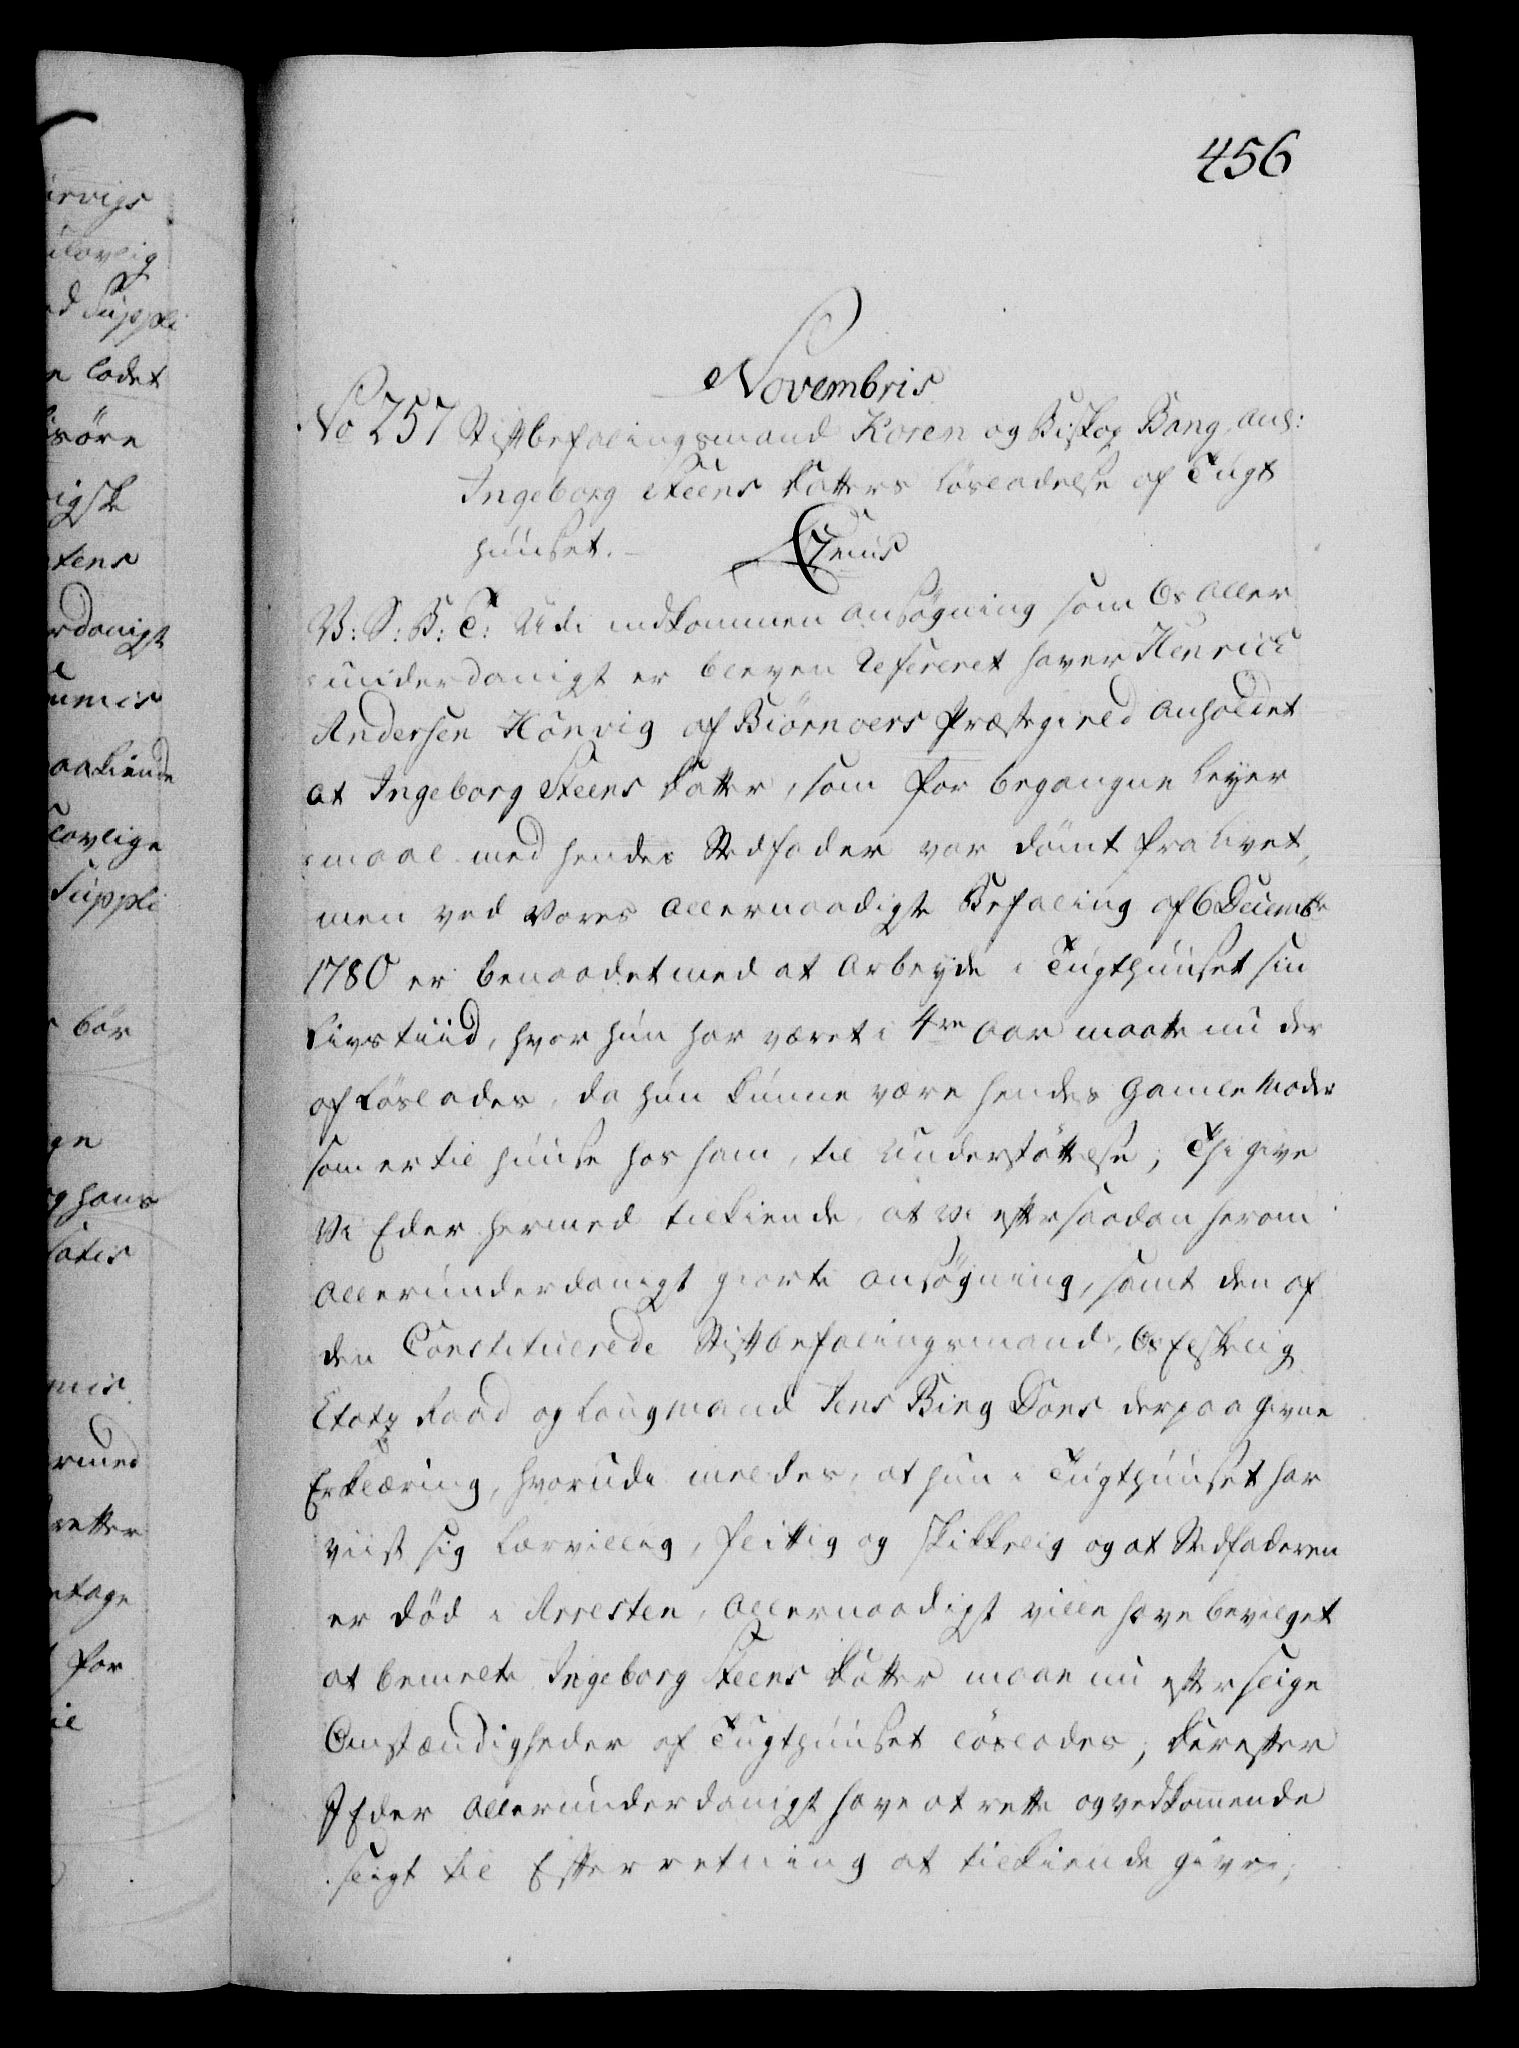 456
Novembris
No 257 Stiftbefalingsmand Koren og Biskop Bang, anl:
Ingeborg Steens Datters Løsladelse af Tugt
huuset. –
V: S: G: T: Udi indkommen Ansøgning som Os aller
underdanigst er bleven refereret haver Henrich
Andersen Hønvig af Biørnøers Præstegield anholdet
at Ingeborg Steens Datter, som for begangne Leyer
maal med hendes Stedfader var dømt fra Livet,
men ved Vores allernaadigste Befaling af 6 Decembr
1780 er benaadet med at arbeyde i Tugthuuset sin
Livs tiid, hvor hun har været i 4re Aar maatte nu der
af løslades, da hun kunne være hendes gamle Moder
som er til huuse hos ham, til Understøttelse; Thi give
Vi Eder hermed tilkiende, at Vi efter saadan herom
allerunderdanigst giorte Ansøgning, samt den af
den Constituerede Stiftbefalingsmand, Os Elskelig
Etatz Raad og Laugmand Jens Bing Dons derpaa givne
Erklæring, hvorudi meldes, at hun i Tugthuuset har
viist sig lærvillig, flittig og skikkelig og at Stedfaderen
er død i Arresten, allernaadigst ville have bevilget
at bemelte Ingeborg Steens Datter maae nu efter slige
Omstændigheder af Tugthuuset løslades; Derefter
I Eder allerunderdanigst have at rette og vedkommende
sligt til Efterretning at tilkiende give;